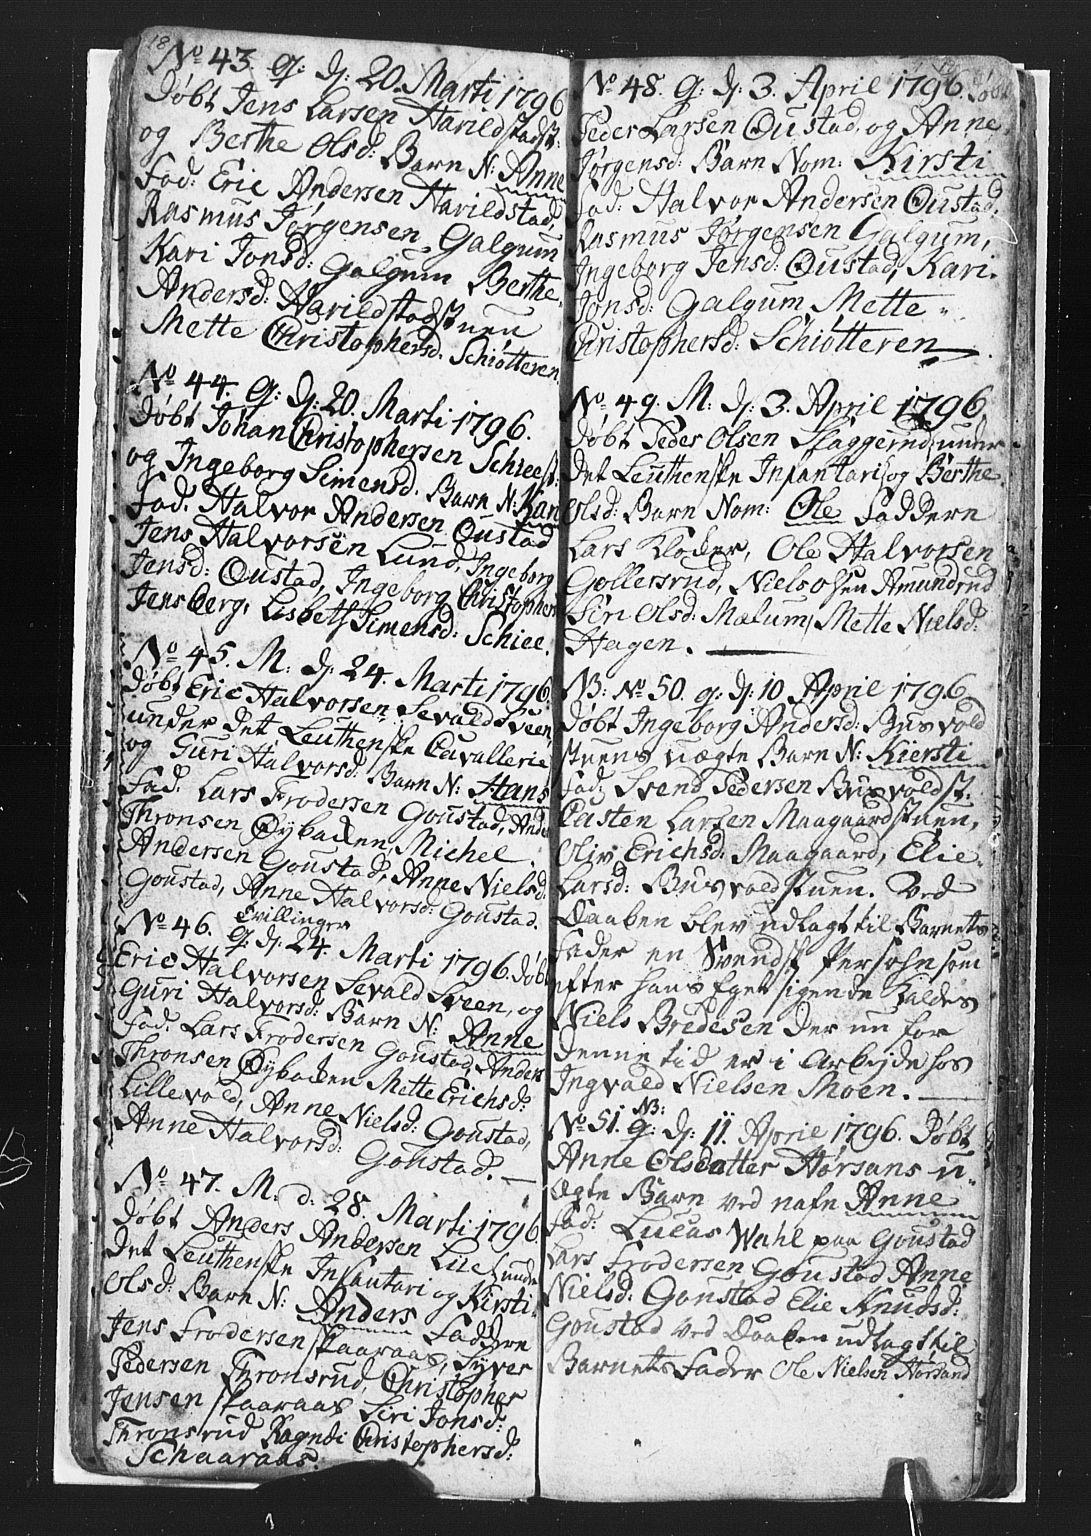 18
No 43. G: D: 20. Marti 1796
Døbt Jens Larsen Harildstadst:
og Berthe Olsd: Barn N: Anne
Fad: Eric Andersen Harildstad,
Rasmus Jørgensen Galgum
Kari Jonsd: Galgum Berthe
Andersd: Harildstadstuen
Mette Christophersd: Schiøtteren.
No 44. G: D: 20. Marti 1796.
Døbt Johan Christophersen Schieest:
og Ingeborg Simensd. Barn N: Kari
Fad. Halvor Andersen Oustad
Jens Halvorsen Lund, Ingeborg
Jensd: Oustad, Ingeborg Christophers
Jensberg, Lisbeth Simensd: Schiee.
No 45. M: D: 24. Marti 1796.
Døbt Eric Halvorsen Sevaldsveen
under det Leuthenske Cavallerie
og Guri Halvorsd: Barn N: Hans
Fad. Lars Frodersen Goustad, Anders
Thronsen Øybakken, Michel
Andersen Goustad, Anne Nielsd:
Goustad, Anne Halvorsd: Goustad.
Tvillinger
No 46. G: D: 24. Marti 1796. Døbt
Eric Halvorsen Sevald Sveen, og
Guri Halvorsd: Barn N: Anne
Fad. Lars Frodersen Goustad, Anders
Thronsen Øybakken Mette Erichsd:
Lillevold, Anne Nielsd: Goustad,
Anne Halvorsd: Goustad.
No 47. M. d: 28. Marti 1796.
Døbt Anders Andersen Lue under
det Leuthenske Infantari og Kirsti
Olsd: Barn N: Anders Faddere
Jens Frodersen Skaaraas, Syver
Pedersen Thronsrud, Christopher
Jensen Skaaraas Siri Jonsd:
Thronsrud Ragndi Christophersd:
Schaaraas.
No 48. G: D: 3. April 1796. Døbt
Peder Larsen Oustad, og Anne
Jørgensd: Barn Nom: Kirsti
Fad: Halvor Andersen Oustad,
Rasmus Jørgensen Galgum,
Ingeborg Jensd: Oustad, Kari
Jonsd: Galgum Mette
Christophersd: Schiøtteren
No 49. M: D: 3. April 1796.
Døbt Peder Olsen Flaggerud under
det Leuthenske Infantari og Berthe
Olsd: Barn Nom: Ole Faddern
Lars Kløder, Ole Halvorsen
Gollersrud, Niels Olsen Amundrud
Siri Olsd: Mælum, Mette Nielsd:
Hagen.
NB: No 50. G: D: 10 April 1796.
Døbt Ingeborg Andersd: Busvold
stuens uægte Barn N: Kiersti
Fad: Svend Pedersen Busvoldst.
Casten Larsen Maagaardstuen,
Oliv Erichsd: Maagaard, Elie
Larsd: Busvoldstuen. Ved
Daaben blev udlagt til Barnets
Fader en Svendsk Persohn som
efter hans Eget sigende kaldes
Niels Bredesen der nu for
denne tid er i Arbejde hos
Ingvald Nielsen Moen.
NB:
No 51. G: D: 11. April 1796. Døbt
Anne Olsdatter Horsans u-
ægte Barn ved nafn Anne
Fad: Lucas Wahl paa Goustad
Lars Frodersen Goustad Anne
Nielsd: Goustad Elie Knudsd:
Goustad ved Daaben udlagt til
Barnets Fader Ole Nielsen Horsand